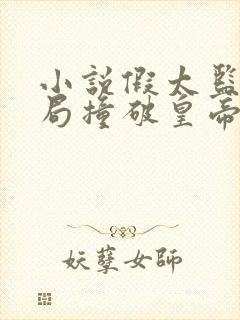 小说假太监
局撞破皇帝
妖孽女師